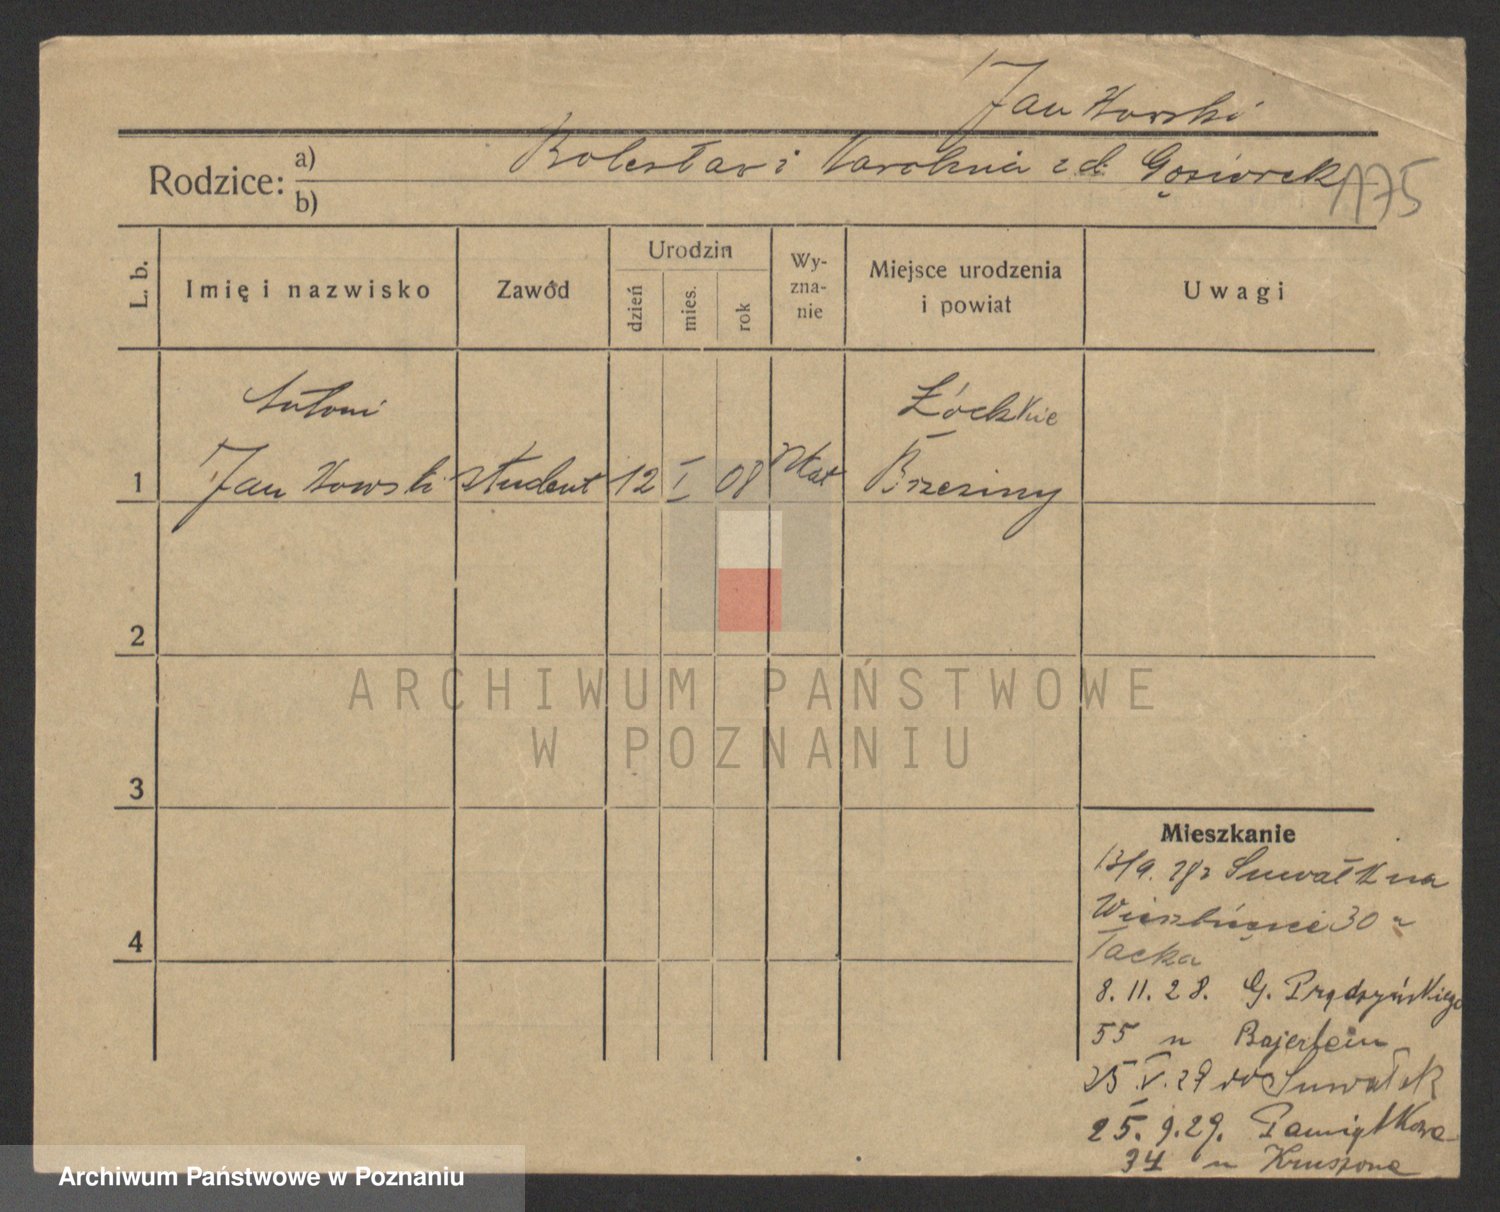 Jankowski
Rodzice: a) Bolesław i Karolina z d. Gąsiorek
b)
175
L. b.
Imię i nazwisko
Zawód
Urodzin
dzień
mies.
rok
Wy-
zna-
nie
Miejsce urodzenia
i powiat
Uwagi
Antoni
Łódzkie
1 Jankowski student 12 I 08 rkat Brzeziny
2
3
4
Mieszkanie
13/9. 28 z Suwałk na
30 u
8. 11. 28. G. Prądzyńskiego
55 u Bajerlein
25. V. 29 do Suwałk
25. 9. 29. Pamiątkowa
34 u
ARCHIWUM PAŃSTWOWE
W POZNANIU
Archiwum Państwowe w Poznaniu